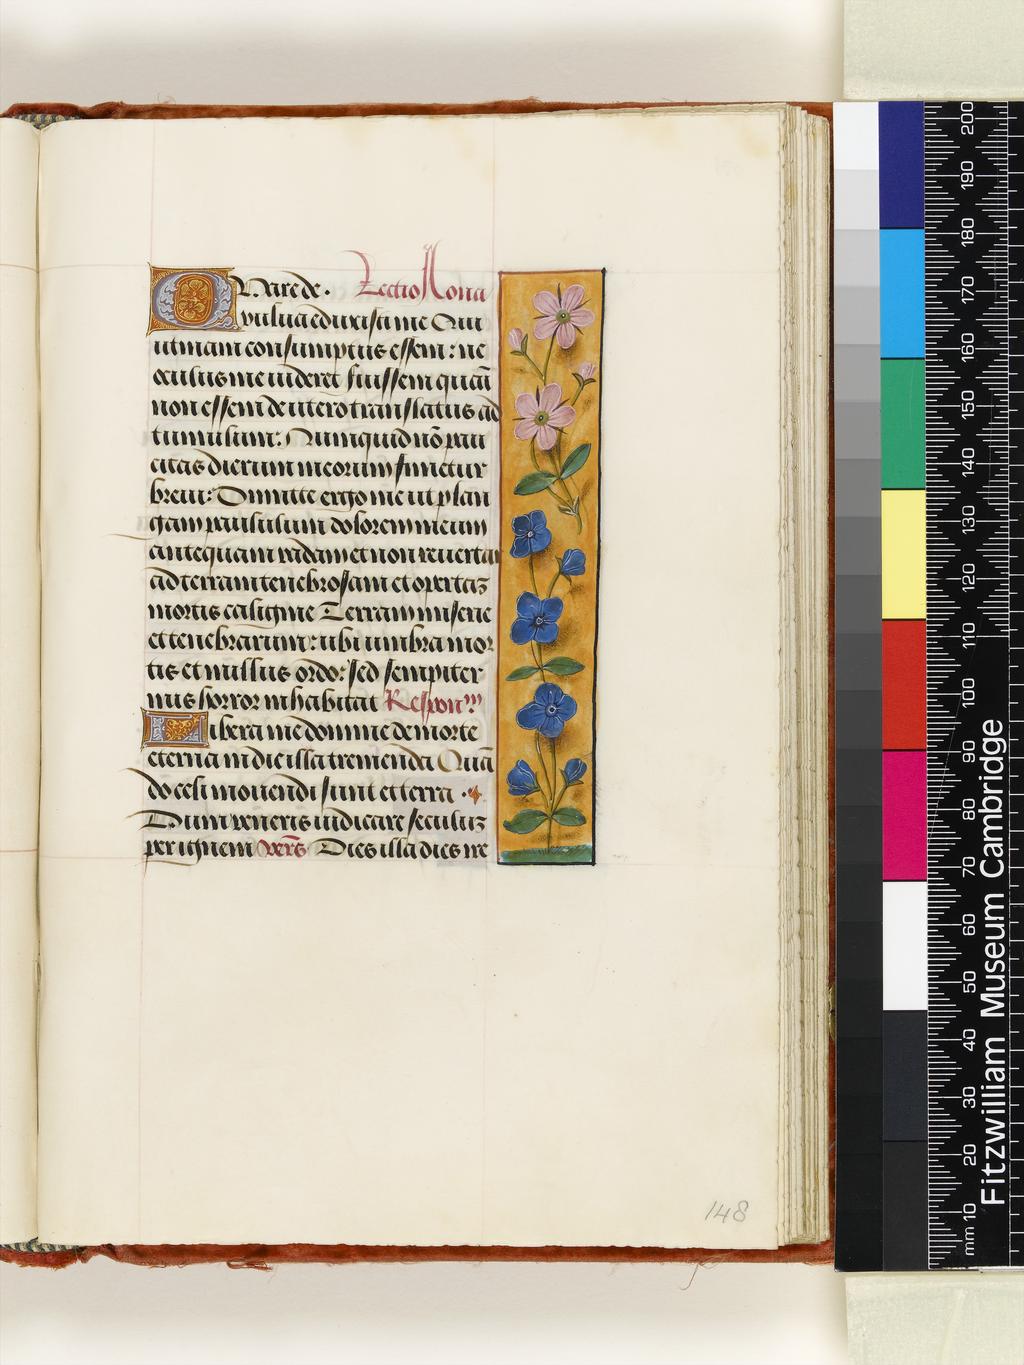 Quare de . Lectio Nona
vulva eduxisti me Qui
utinam consumptus essem : ne
oculus me videret fuissem quasi
non essem de utero translatus ad
tumulum : Numquid nō pau
citas dierum meorum finietur
brevi : Dimitte ergo me ut plan
gam paululum dolorem meum
antequam vadam et non revertar
ad terram tenebrosam et opertaz
mortis caligine Terram miserie
et tenebrarum : ubi umbra mor
tis et nullus ordo : sed sempiter
nus horror inhabitat Respon
Libera me domine de morte
eterna in die illa tremenda Quā
do celi movendi sunt et terra .
Dum veneris iudicare seculuz
per ignem vers Dies illa dies ire
148
Fitzwilliam Museum Cambridge
mm 10 20 30 40 50 60 70 80 90 100 110 120 130 140 150 160 170 180 190 200